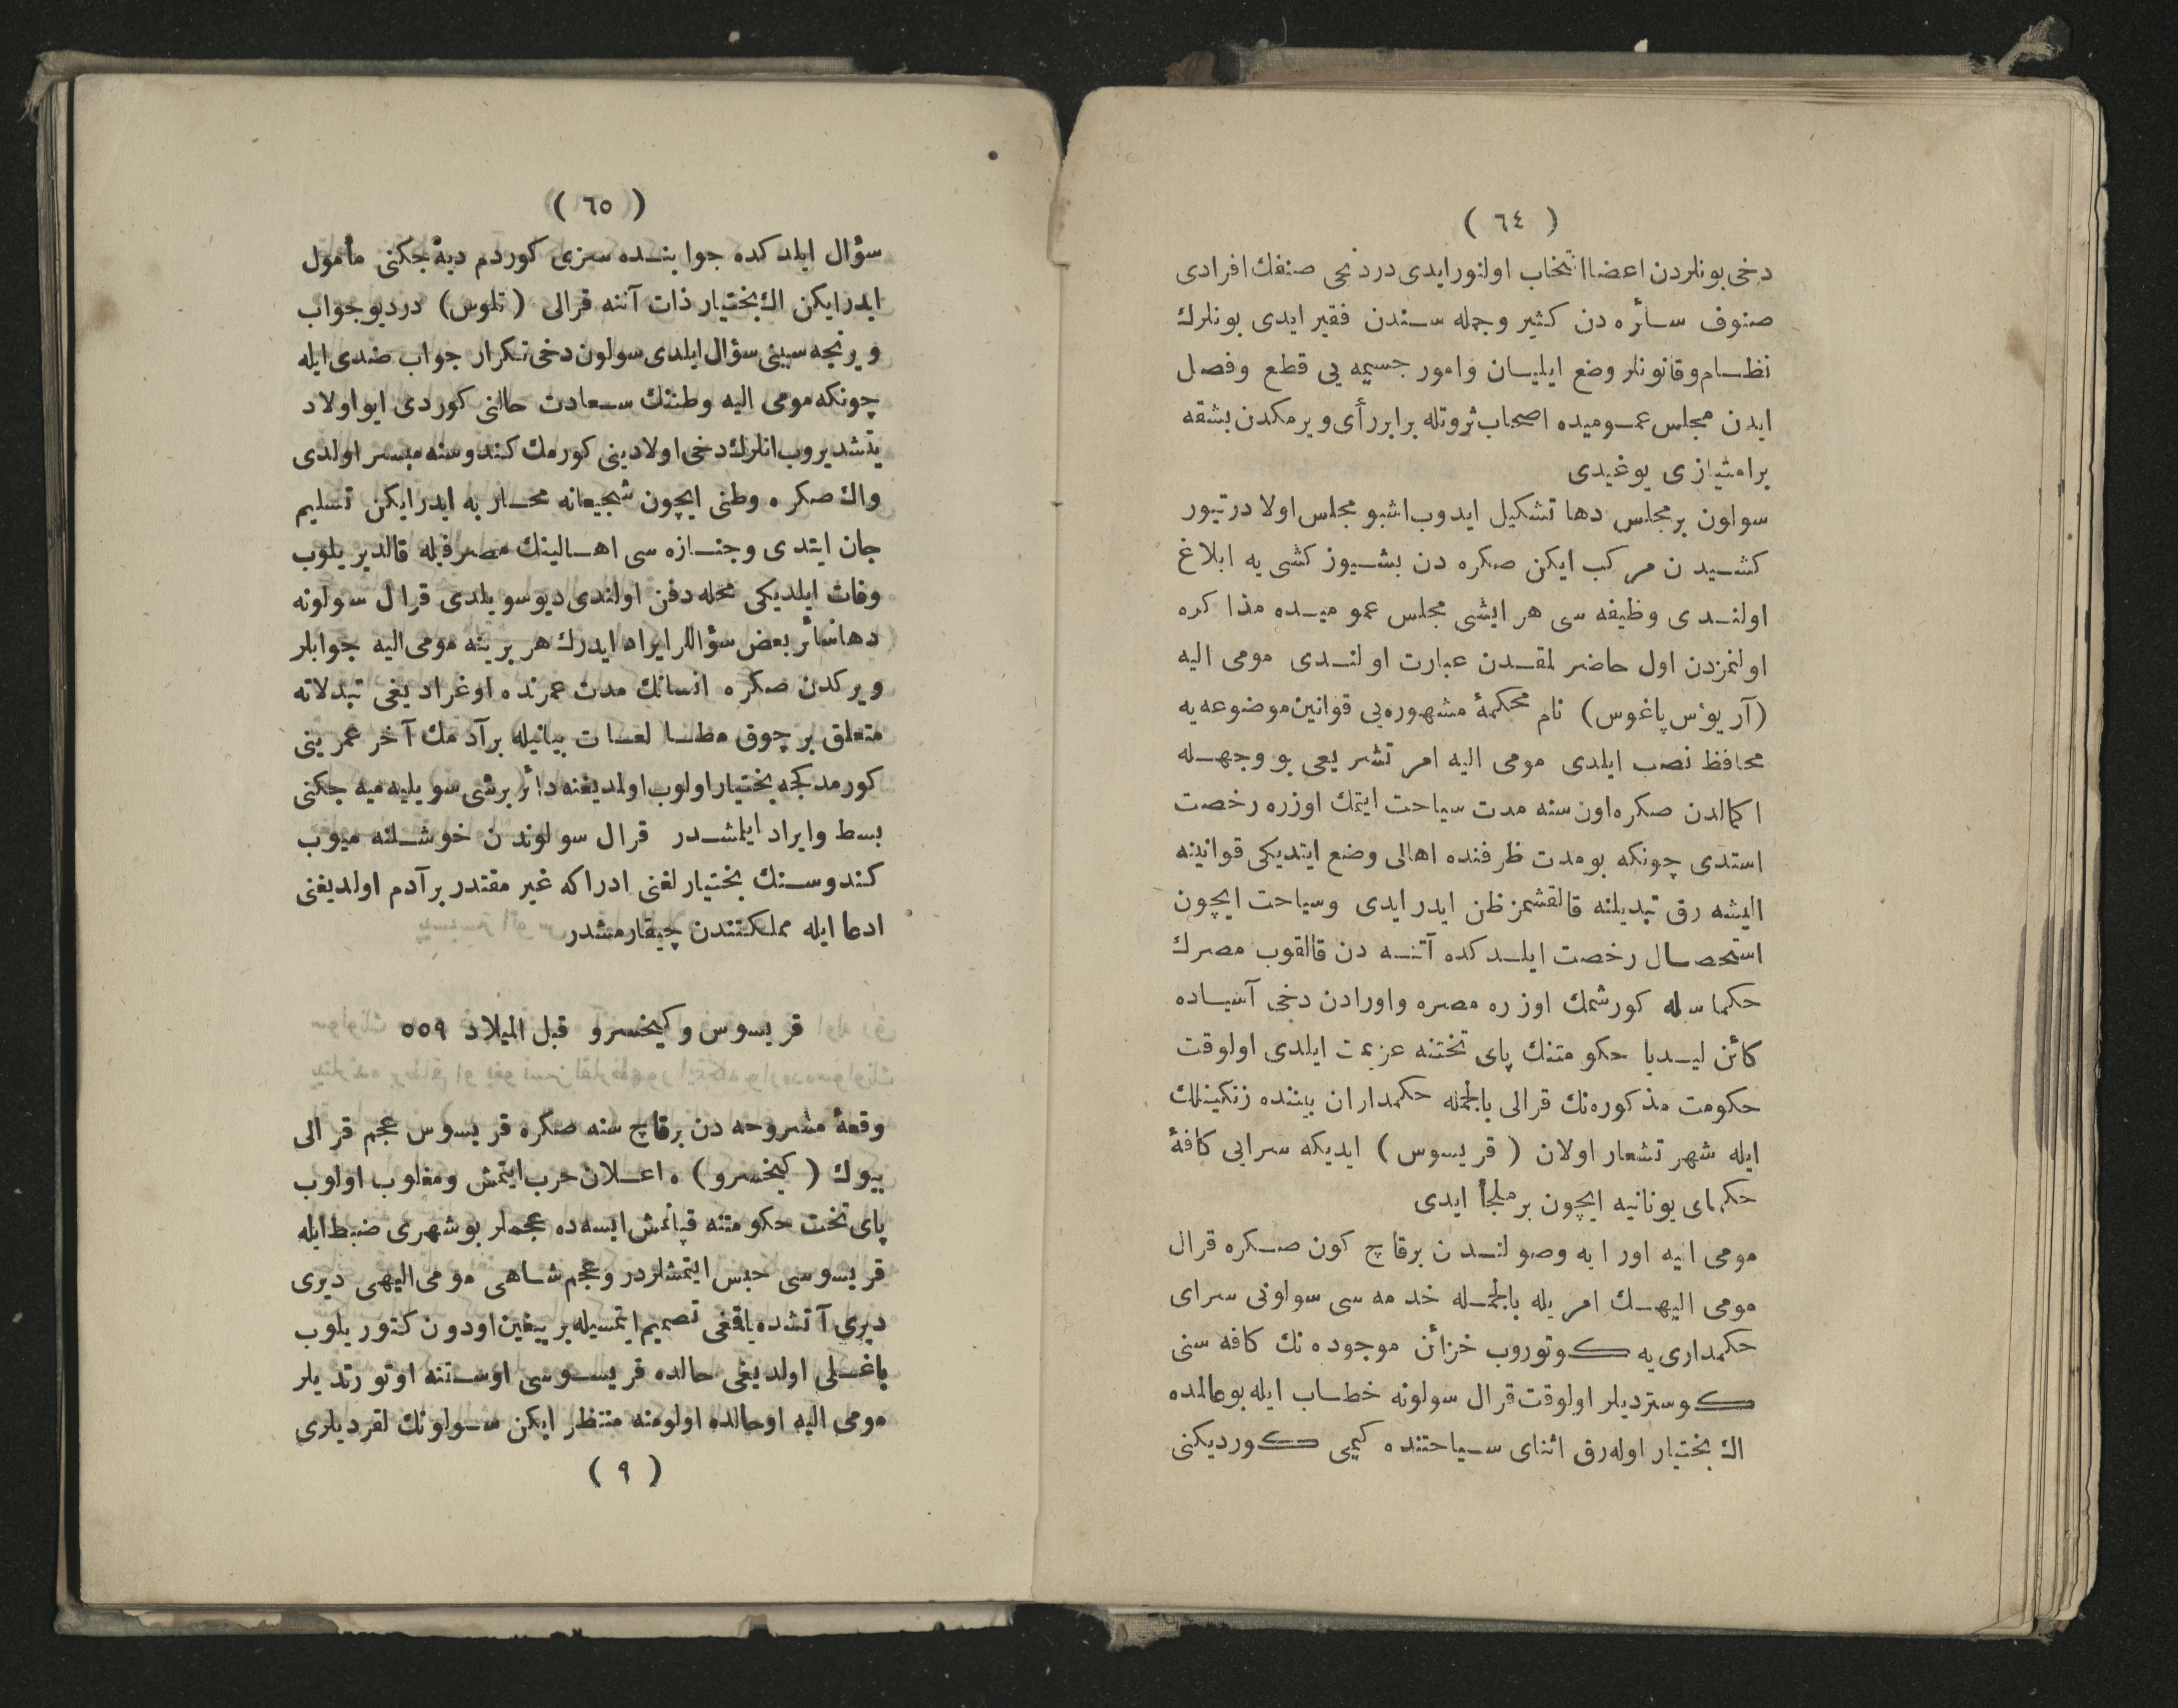 ( ٦٤ )
دخی بونلردن اعضا انتخاب اولنور ایدی دردنجی صنفك افرادی
صنوف سائره دن كثیر وجمله سندن فقیر ایدی بونلرك
نظام وقانونلر وضع ایلیان وامور جسیمه یی قطع وفصل
ایدن مجلس عمومیده اصحاب ثروتله برابر رأی ویرمكدن بشقه
بر امتیازی یوغیدی
سولون بر مجلس دها تشكیل ایدوب اشبو مجلس اولا درتیوز
كشیدن مركب ایكن صكره دن بشیوز كشی یه ابلاغ
اولندی وظیفه سی هر ایشی مجلس عمومیده مذاكره
اولنمزدن اول حاضرلمقدن عبارت اولندی مومی الیه
(آریؤس پاغوس) نام محكمهٔ مشهوره یی قوانین موضوعه یه
محافظ نصب ایلدی مومی الیه امر تشریعی بو وجهله
اكمالدن صكره اون سنه مدت سیاحت ایتمك اوزره رخصت
استدی چونكه بو مدت ظرفنده اهالی وضع ایتدیكی قوانینه
الیشه رق تبدیلنه قالقشمز ظن ایدر ایدی وسیاحت ایچون
استحصال رخصت ایلدكده آتنه دن قالقوب مصرك
حكماسله كورشمك اوزره مصره واورادن دخی آسیاده
كائن لیدیا حكومتنك پای تختنه عزیمت ایلدی اولوقت
حكومت مذكوره نك قرالی بالجمله حكمداران بیننده زنكینلك
ایله شهرتشعار اولان ( قریسوس ) ایدیكه سرایی كافهٔ
حكمای یونانیه ایچون بر ملجأ ایدی
مومی الیه اورایه وصولندن برقاچ كون صكره قرال
مومی الیهك امریله بالجمله خدمه سی سولونی سرای
حكمداری یه كوتوروب خزائن موجوده نك كافه سنی
كوستردیلر اولوقت قرال سولونه خطاب ایله بو عالمده
اك بختیار اوله رق اثنای سیاحتنده كیمی كوردیكنی
( ٦٥ )
سؤال ایلدكده جوابنده سزی كوردم دیه جكنی مأمول
ایدر ایكن اك بختیار ذات آتنه قرالی ( تلوس ) در دیو جواب
ویرنجه سببنی سؤال ایلدی سولون دخی تكرار جواب ضدی ایله
چونكه مومی الیه وطننك سعادت حالنی كوردی ایو اولاد
یتشدیروب انلرك دخی اولادینی كورمك كندوسنه میسر اولدی
واك صكره وطنی ایچون شجیعانه محاربه ایدر ایكن تسلیم
جان ایتدی وجنازه سی اهالینك مصرفیله قالدیریلوب
وفات ایلدیكی محله دفن اولندی دیو سویلدی قرال سولونه
دها سائر بعض سؤاللر ایراد ایدرك هر برینه مومی الیه جوابلر
ویركدن صكره انسانك مدت عمرنده اوغرادیغی تبدلاته
متعلق بر چوق مطالعات بیانیله بر آدمك آخر عمرینی
كورمدكجه بختیار اولوب اولمدیغنه دائر برشی سویلیه میه جكنی
بسط وایراد ایلمشدر قرال سولوندن خوشلنه میوب
كندوسنك بختیارلغنی ادراكه غیر مقتدر بر آدم اولدیغنی
ادعا ایله مملكتندن چیقارمشدر
قریسوس وكیخسرو قبل المیلاد ٥٥٩
وقعهٔ مشروحه دن برقاچ سنه صكره قریسوس عجم قرالی
بیوك ( كیخسرو ) ه اعلان حرب ایتمش ومغلوب اولوب
پای تخت حكومتنه قپانمش ایسه ده عجملر بو شهری ضبط ایله
قریسوسی حبس ایتمشلردر وعجم شاهی مومی الیهی دیری
دیری آتشده یاقغی تصمیم ایتمسیله بر ییغین اودون كتوریلوب
باغلی اولدیغی حالده قریسوسی اوستنه اوتورتدیلر
مومی الیه اوحالده اولومنه منتظر ایكن سولونك لقردیلری
( ٩ )